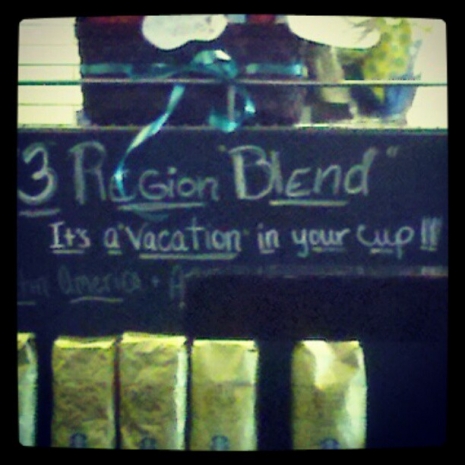 3 Region "Blend"
It's a "Vacation" in your cup!!!
America +